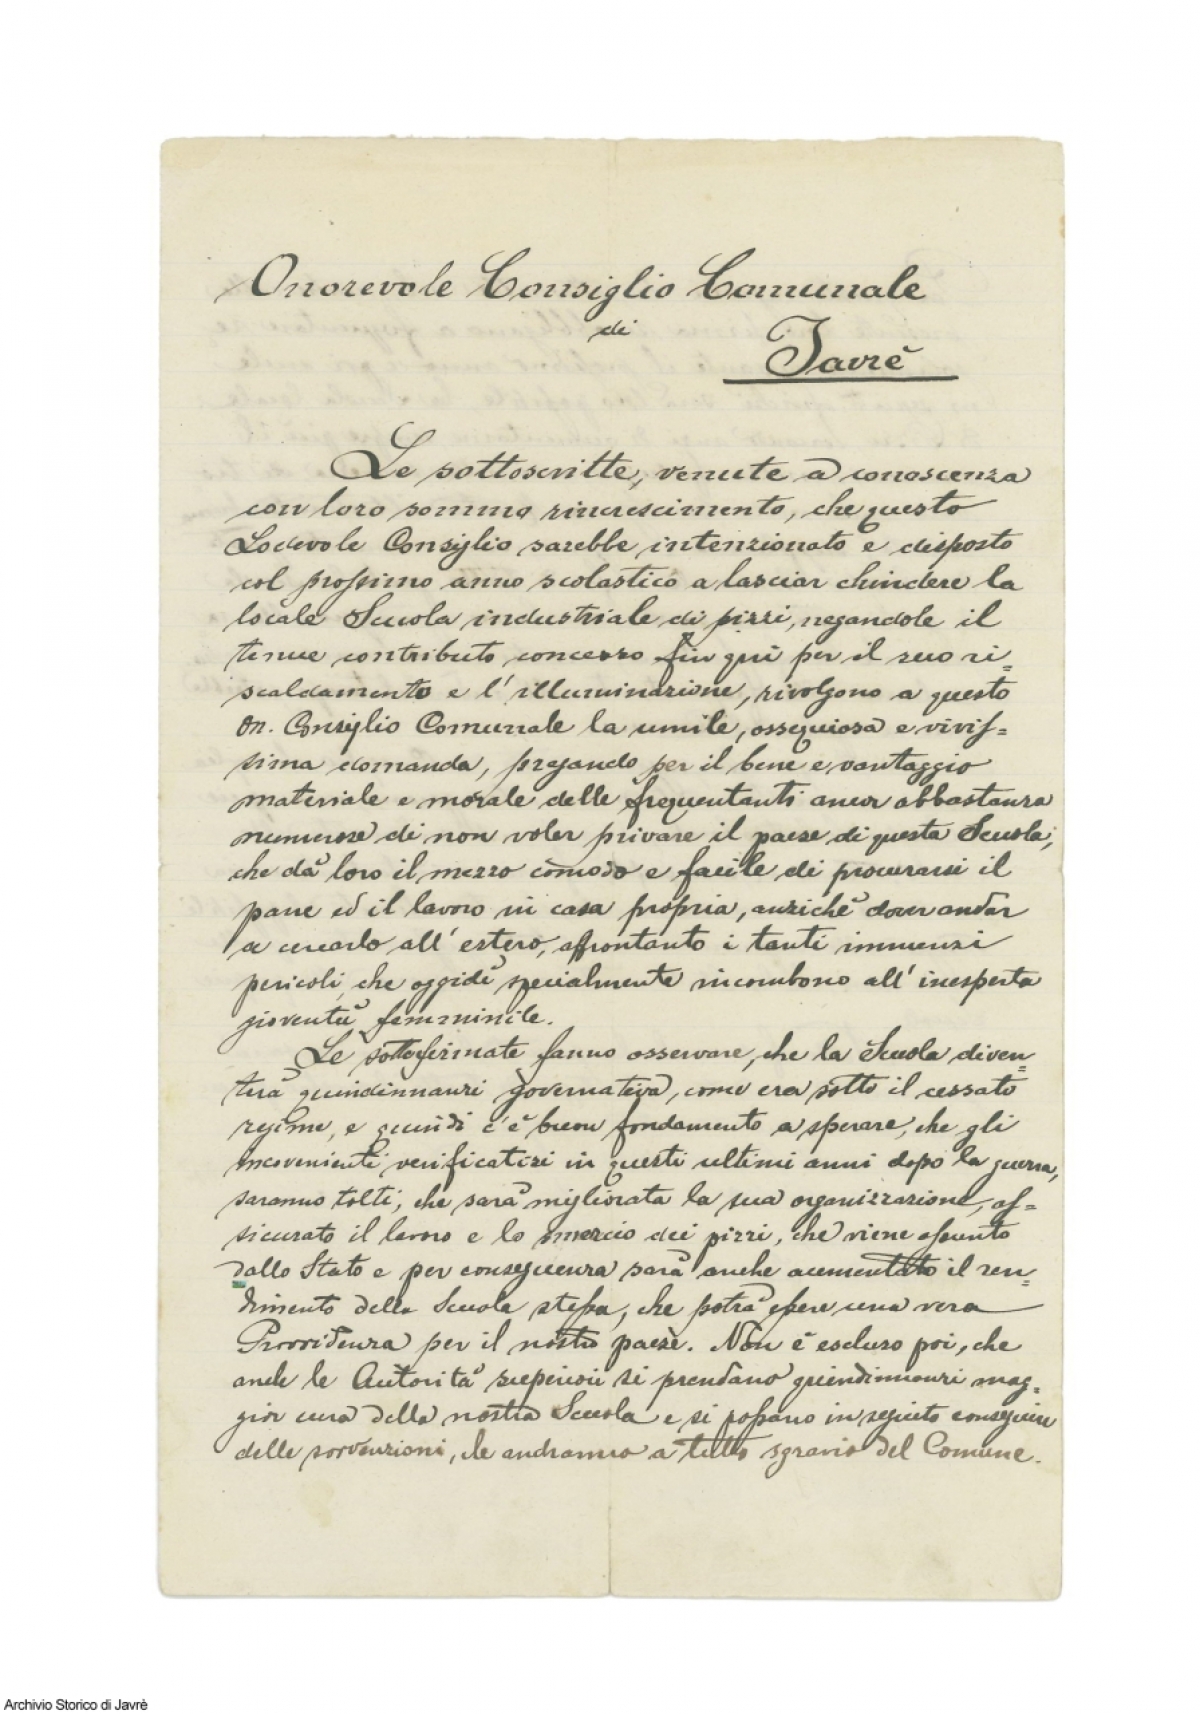 Onorevole Consiglio Comunale
di
Javrè
Le sottoscritte, venute a conoscenza
con loro sommo rincrescimento, che questo
Lodevole Consiglio sarebbe intenzionato e disposto
col prossimo anno scolastico a lasciar chiudere la
locale Scuola industriale di pizzi, negandole il
tenue contributo concesso fin quì per il suo ri=
scaldamento e l'illuminazione, rivolgono a questo
On. Consiglio Comunale la umile, ossequiosa e vivis=
sima domanda, pregando per il bene e vantaggio
materiale e morale delle frequentanti ancor abbastanza
numerose di non voler privare il paese di questa Scuola,
che dà loro il mezzo còmodo e facile di procurarsi il
pane ed il lavoro in casa propria, anzichè dover andar
a cercarlo all'estero, affrontanto i tanti immensi
pericoli, che oggidì specialmente incombono all'inesperta
gioventù femminile.
Le sottofirmate fanno osservare, che la Scuola diven=
terà quindinnanzi governativa, come era sotto il cessato
regime, e quindi c'è buon fondamento a sperare, che gli
incovenienti verificatisi in questi ultimi anni dopo la guerra,
saranno tolti, che sarà migliorata la sua organizzazione, as=
sicurato il lavoro e lo smercio dei pizzi, che viene assunto
dallo Stato e per conseguenza sarà anche aumentato il ren=
dimento della Scuola stessa, che potrà essere una vera
Provvidenza per il nostro paese. Non è escluso poi, che
anche le Autorità superiori si prendano quindinnanzi mag=
gior cura della nostra Scuola e si possano in seguito conseguire
delle sovvenzioni, che andranno a tutto sgravio del Comune.
Archivio Storico di Javrè